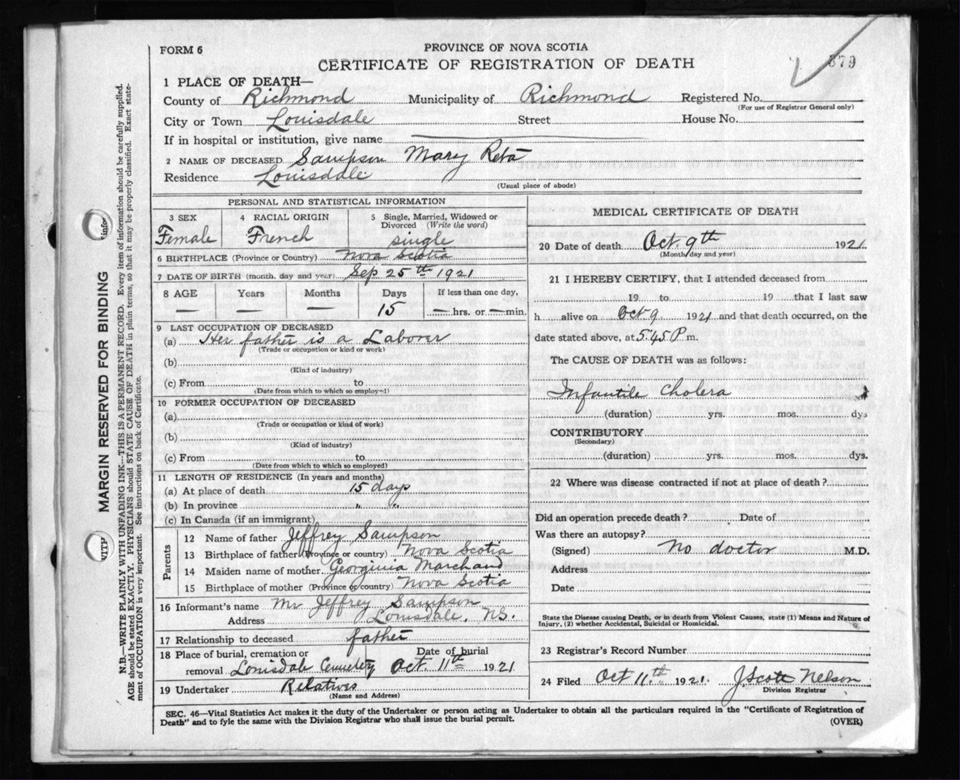 FORM 6
PROVINCE OF NOVA SCOTIA
CERTIFICATE OF REGISTRATION OF DEATH
379
1 PLACE OF DEATH—
County of Richmond Municipality of Richmond Registered No.
(For use of Registrar General only)
City or Town Louisdale Street House No.
If in hospital or institution, give name
2 NAME OF DECEASED Sampson Mary Reta
Residence Louisdale
(Usual place of abode)
PERSONAL AND STATISTICAL INFORMATION
3 SEX 4 RACIAL ORIGIN 5 Single, Married, Widowed or
Divorced (Write the word)
Female French single
6 BIRTHPLACE (Province or Country) Nova Scotia
7 DATE OF BIRTH (month, day and year) Sep 25th 1921
8 AGE Years Months Days If less than one day,
— — — 15 — hrs. or — min.
9 LAST OCCUPATION OF DECEASED
(a) Her father is a Laborer
(Trade or occupation or kind or work)
(b)
(Kind of industry)
(c) From to
(Date from which to which so employed)
10 FORMER OCCUPATION OF DECEASED
(a)
(Trade or occupation or kind of work)
(b)
(Kind of industry)
(c) From to
(Date from which to which so employed)
11 LENGTH OF RESIDENCE (In years and months)
(a) At place of death 15 days
(b) In province " "
(c) In Canada (if an immigrant)
Parents
12 Name of father Jeffrey Sampson
13 Birthplace of father (Province or country) Nova Scotia
14 Maiden name of mother Georginia Marchand
15 Birthplace of mother (Province or country) Nova Scotia
16 Informant's name Mr Jeffrey Sampson
Address Louisdale, N.S.
17 Relationship to deceased father
18 Place of burial, cremation or Date of burial
removal Louisdale Cemetery Oct. 11th 1921
19 Undertaker Relatives
(Name and Address)
MEDICAL CERTIFICATE OF DEATH
20 Date of death Oct. 9th 1921
(Month, day and year)
21 I HEREBY CERTIFY, that I attended deceased from
19 to 19 that I last saw
h alive on Oct 9 1921 and that death occurred, on the
date stated above, at 5.45 P m.
The CAUSE OF DEATH was as follows:
Infantile Cholera
(duration) yrs. mos. dys
CONTRIBUTORY
(Secondary)
(duration) yrs. mos. dys.
22 Where was disease contracted if not at place of death?
Did an operation precede death? Date of
Was there an autopsy?
(Signed) No doctor M.D.
Address
Date
State the Disease causing Death, or in death from Violent Causes, state (1) Means and Nature of
Injury, (2) whether Accidental, Suicidal or Homicidal.
23 Registrar's Record Number
24 Filed Oct 11th 1921. J. Scott Nelson
Division Registrar
SEC. 46—Vital Statistics Act makes it the duty of the Undertaker or person acting as Undertaker to obtain all the particulars required in the "Certificate of Registration of
Death" and to fyle the same with the Division Registrar who shall issue the burial permit.
(OVER)
MARGIN RESERVED FOR BINDING
N.B.—WRITE PLAINLY WITH UNFADING INK—THIS IS A PERMANENT RECORD. Every item of information should be carefully supplied.
AGE should be stated EXACTLY. PHYSICIANS should STATE CAUSE OF DEATH in plain terms, so that it may be properly classified. Exact state-
ment of OCCUPATION is very important. See instructions on back of Certificate.